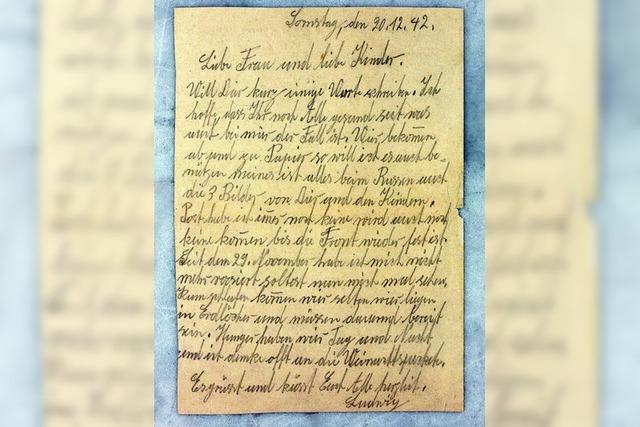 Somstag, den 20.12.42.
Liebe Frau und liebe Kinder.
Will Dir kurz einige Worte schreiben. Ich
hoffe, dass Ihr noch Alle gesund seit was
auch bei mir der Fall ist. Wir bekommen
ab und zu Papier so will ich es auch be-
nützen meines ist alles beim Russen auch
die 3 Bilder von Dir und den Kindern.
Post habe ich immer noch keine wird auch noch
keine kommen bis die Front wieder fest ist.
Seit dem 29. November habe ich mich nicht
mehr rasiert solltest nun mich mal sehen,
Zum schlafen kommen wir selten wir liegen
in Erdlöcher und müssen dauernd bereit
sein. Hunger haben wir Tag und Nacht
und ich denke offt an die
Es grüsst und küsst Euch Alle herzlich.
Ludwig